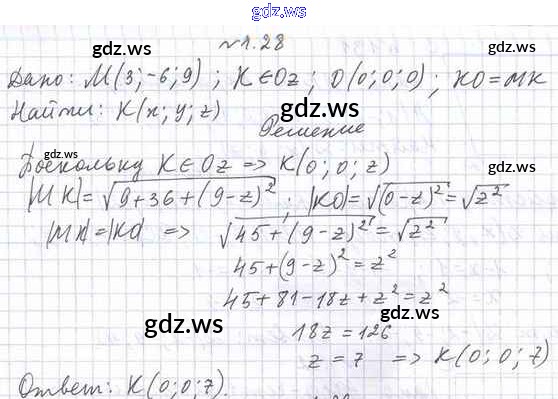 gdz.ws
№1.28
gdz.ws
gdz.ws
Дано: M(3;-6;9); K∈Oz; O(0;0;0); KO=MK
Найти: K(x; y; z)
Решение
Поскольку K∈Oz => K(0; 0; z)
gdz.ws
gdz.ws
|MK|=√(9+36+(9-z)²); |KO|=√(0-z)²=√z²
|MK|=|KO| => √(45+(9-z)²)=√z²
45+(9-z)²=z²
45+81-18z+z²=z²
gdz.ws
gdz.ws
18z=126
z=7 => K(0; 0; 7)
Ответ: K(0;0;7).
gdz.ws